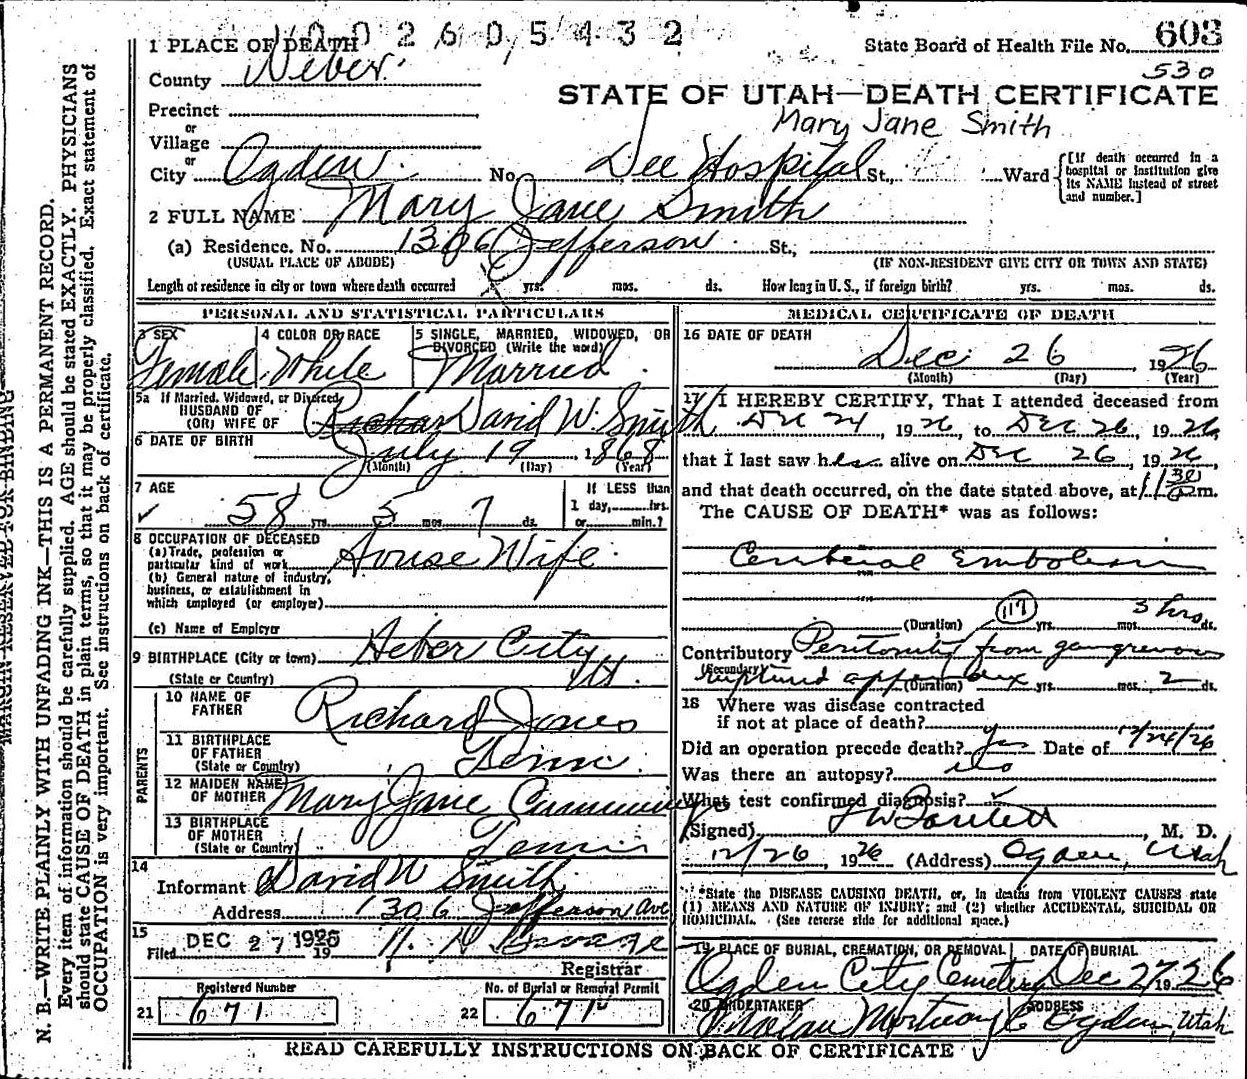 1 0 0 2 6 0 5 4 3 2
State Board of Health File No. 603
530
1 PLACE OF DEATH
County Weber
STATE OF UTAH—DEATH CERTIFICATE
Mary Jane Smith
Precinct
or
Village
or
City Ogden No. Dee Hospital St., Ward [If death occurred in a hospital or institution give its NAME instead of street and number.]
2 FULL NAME Mary Jane Smith
(a) Residence. No. 1306 Jefferson St.,
(USUAL PLACE OF ABODE) (IF NON-RESIDENT GIVE CITY OR TOWN AND STATE)
Length of residence in city or town where death occurred yrs. mos. ds. How long in U. S., if foreign birth? yrs. mos. ds.
PERSONAL AND STATISTICAL PARTICULARS
3 SEX 4 COLOR OR RACE 5 SINGLE, MARRIED, WIDOWED, OR
DIVORCED (Write the word)
Female White Married
5a If Married, Widowed, or Divorced
HUSBAND OF
(OR) WIFE OF Richar David W. Smith
6 DATE OF BIRTH July 19, 1868
(Month) (Day) (Year)
7 AGE If LESS than
58 yrs. 5 mos. 7 ds. 1 day, hrs.
or min.?
8 OCCUPATION OF DECEASED
(a) Trade, profession or
particular kind of work House Wife
(b) General nature of industry,
business, or establishment in
which employed (or employer)
(c) Name of Employer
9 BIRTHPLACE (City or town) Heber City
(State or Country) Ut.
PARENTS
10 NAME OF
FATHER Richard Jones
11 BIRTHPLACE
OF FATHER
(State or Country) Tenn.
12 MAIDEN NAME
OF MOTHER Mary Jane
13 BIRTHPLACE
OF MOTHER
(State or Country)
14
Informant David W Smith
Address 1306 Jefferson Ave
15
Filed DEC 27 1926 19
Registrar
Registered Number No. of Burial or Removal Permit
21 671 22 671
MEDICAL CERTIFICATE OF DEATH
16 DATE OF DEATH
Dec. 26 1926
(Month) (Day) (Year)
17 I HEREBY CERTIFY, That I attended deceased from
Dec 24, 1926, to Dec 26, 1926,
that I last saw her alive on Dec 26, 1926,
and that death occurred, on the date stated above, at 11 30 P.m.
The CAUSE OF DEATH* was as follows:
Cerebral Embolism
117 3 hrs
(Duration) yrs. mos. ds.
Contributory Peritonitis from gangrenous
(Secondary) ruptured appendix (Duration) yrs. mos. 2 ds.
18 Where was disease contracted
if not at place of death?
Did an operation precede death? Yes Date of 12/24/26
Was there an autopsy? no
What test confirmed diagnosis?
(Signed) M. D.
12/26, 1926 (Address) Ogden, Utah
*State the DISEASE CAUSING DEATH, or, in deaths from VIOLENT CAUSES state
(1) MEANS AND NATURE OF INJURY; and (2) whether ACCIDENTAL, SUICIDAL OR
HOMICIDAL. (See reverse side for additional space.)
19 PLACE OF BURIAL, CREMATION, OR REMOVAL DATE OF BURIAL
Ogden City Cemetery Dec 27 1926
20 UNDERTAKER ADDRESS
Mortuary Ogden, Utah
READ CAREFULLY INSTRUCTIONS ON BACK OF CERTIFICATE
MARGIN RESERVED FOR BINDING
N. B.—WRITE PLAINLY WITH UNFADING INK—THIS IS A PERMANENT RECORD.
Every item of information should be carefully supplied. AGE should be stated EXACTLY. PHYSICIANS
should state CAUSE OF DEATH in plain terms, so that it may be properly classified. Exact statement of
OCCUPATION is very important. See instructions on back of certificate.